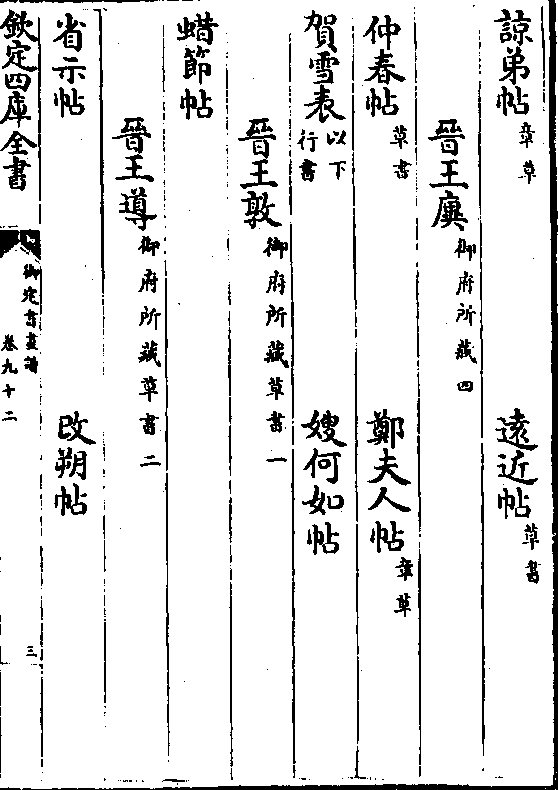 諒弟帖章草　遠近帖草書
晉王廙御府所藏四
仲春帖草書　鄭夫人帖章草
賀雪表以下行書　嫂何如帖
晉王敦御府所藏草書一
蜡節帖
晉王導御府所藏草書二
省示帖　改朔帖
欽定四庫全書　御定書畫譜卷九十二　三